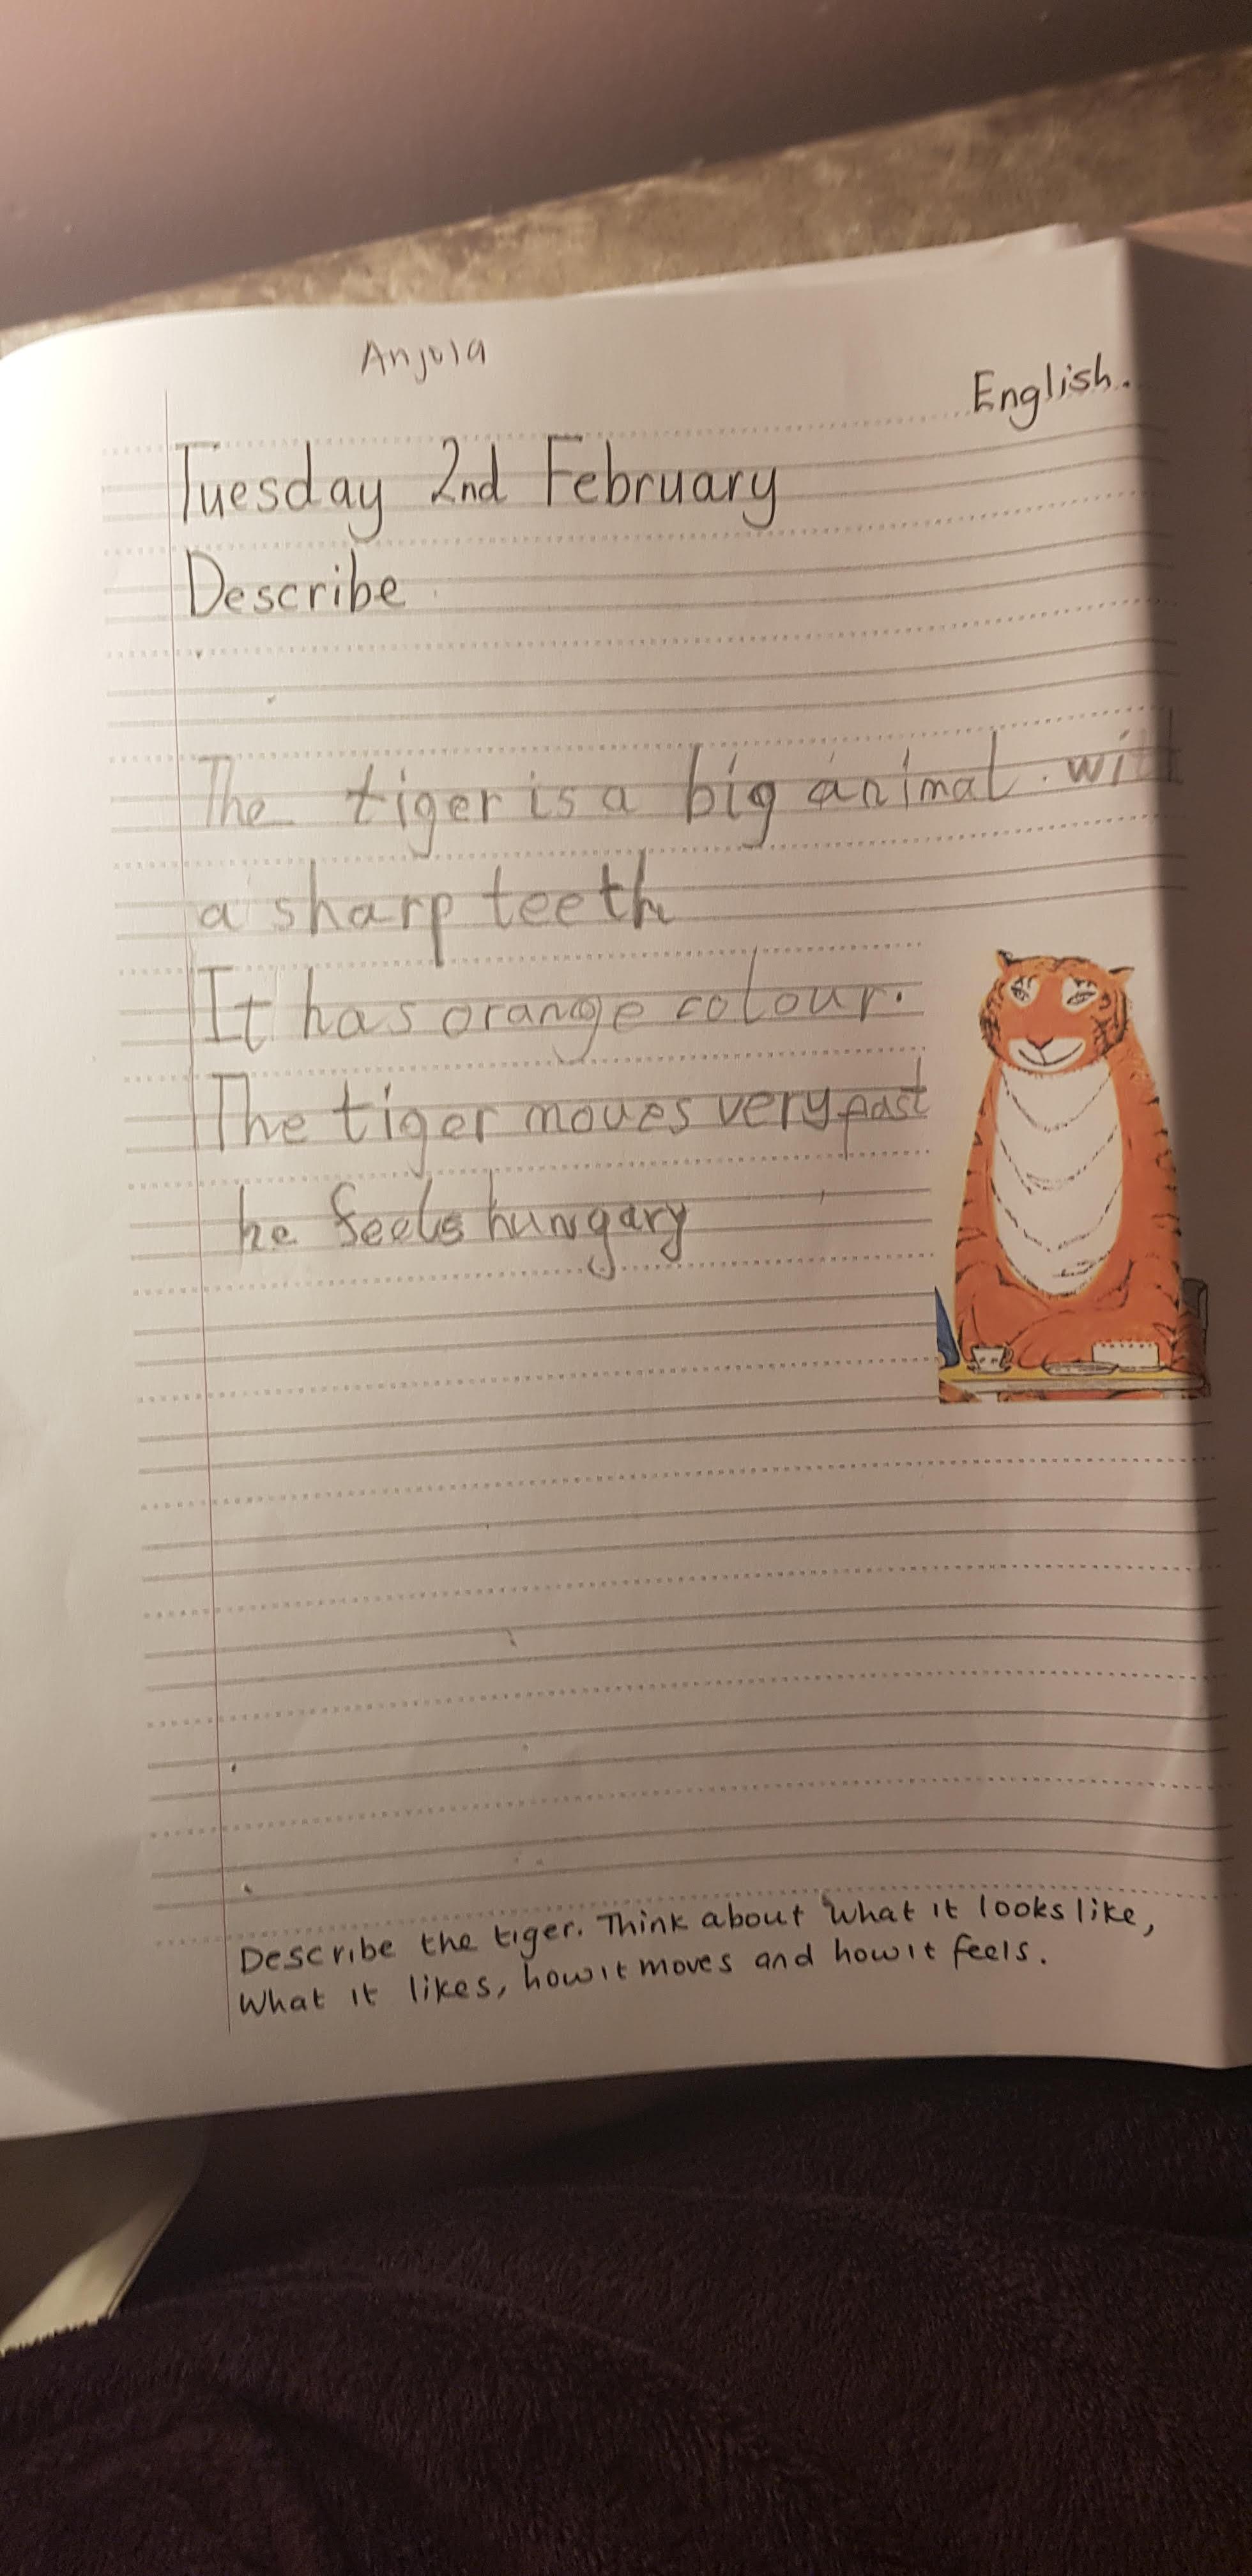 Anjola
English.
Tuesday 2nd February
Describe
The tiger is a big animal. with
a sharp teeth
It has orange colour.
The tiger moves very past
he feels hungary
Describe the tiger. Think about what it looks like,
What it likes, how it moves and how it feels.